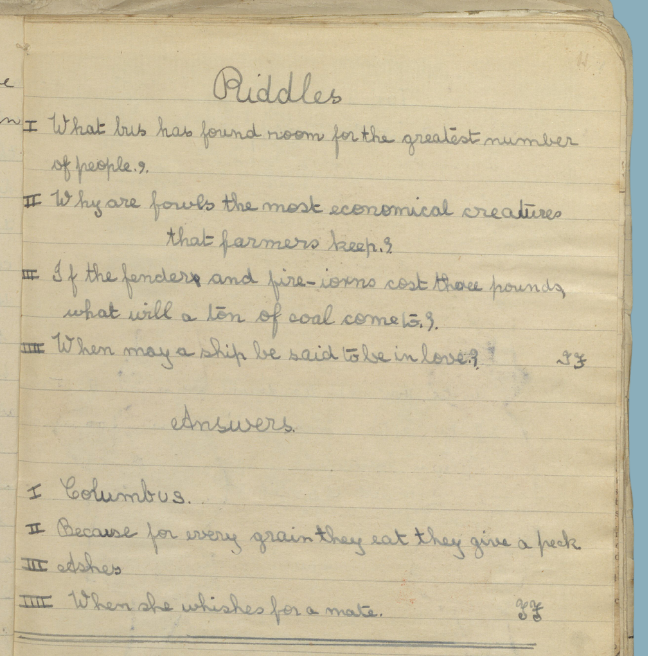 Riddles
I What bus has found room for the greatest number
of people.?.
II Why are fowls the most economical creatures
that farmers keep.?
III If the fenders and fire-iorns cost three pounds,
what will a ton of coal come to.?.
IIII When may a ship be said to be in love.?
Answers.
I Columbus.
II Because for every grain they eat they give a peck
III Ashes
IIII When she whishes for a mate.